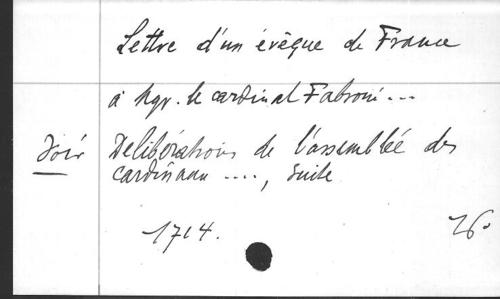 Lettre d'un évêque de France
à Mgr. le cardinal Fabroni...
Voir Délibérations de l'assemblée des
cardinaux ...., suite
1714. 26.